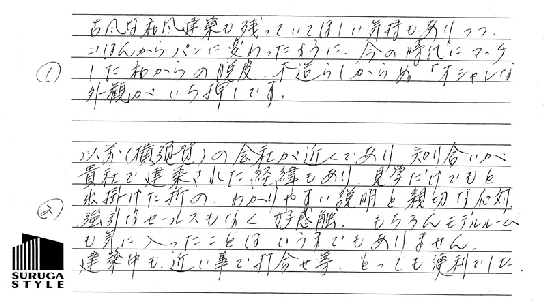 古風な和風建築も残っていてほしい気持もありつつ、
ごはんからパンに変わったように、今の時代にマッチ
① した和からの脱皮、木造らしからぬ「オシャレな
外観がいち押しです。
以前(横須賀)の会社が近くであり 知り合いが
貴社で建築された経緯もあり 見学だけでもと
② 出掛けた折の、わかりやすい説明と親切な応対、
強引なセールスもなく 好感触。もちろんモデルルーム
も気に入ったことは いうまでもありません。
建築中も、近い事で打合せ等、とっても便利でした。
SURUGA
STYLE